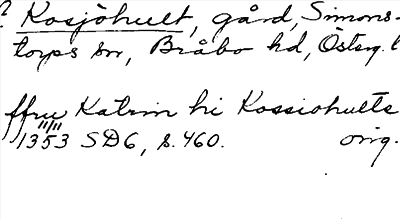 ? Kosjöhult, gård, Simons-
torps sn, Bråbo hd, Österg. l
ffru Katrin hi Kossiohults
11/11 1353 SD6, s. 460. orig.